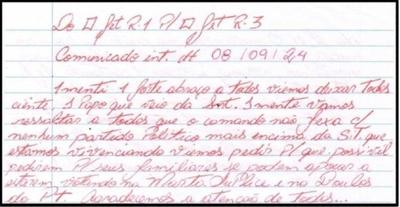 Do □ Jet R.1 P/ □ Jet R-3
Comunicado int. # 08/09/24
1 menti 1 forte abraço a todos viemos deixar todos
ciente, 1 Papo que veio da Snt. 1 mente vamos
ressaltar a todos que o comando não fexa c/
nenhum partido Politico mais encima da S.T. que
estamos vivenciando viemos pedir P/ que possivel
pedirem P/ seus familiares se podem apoiar a
estarem votando na e na
do PT Agradecemos a atenção de todos...